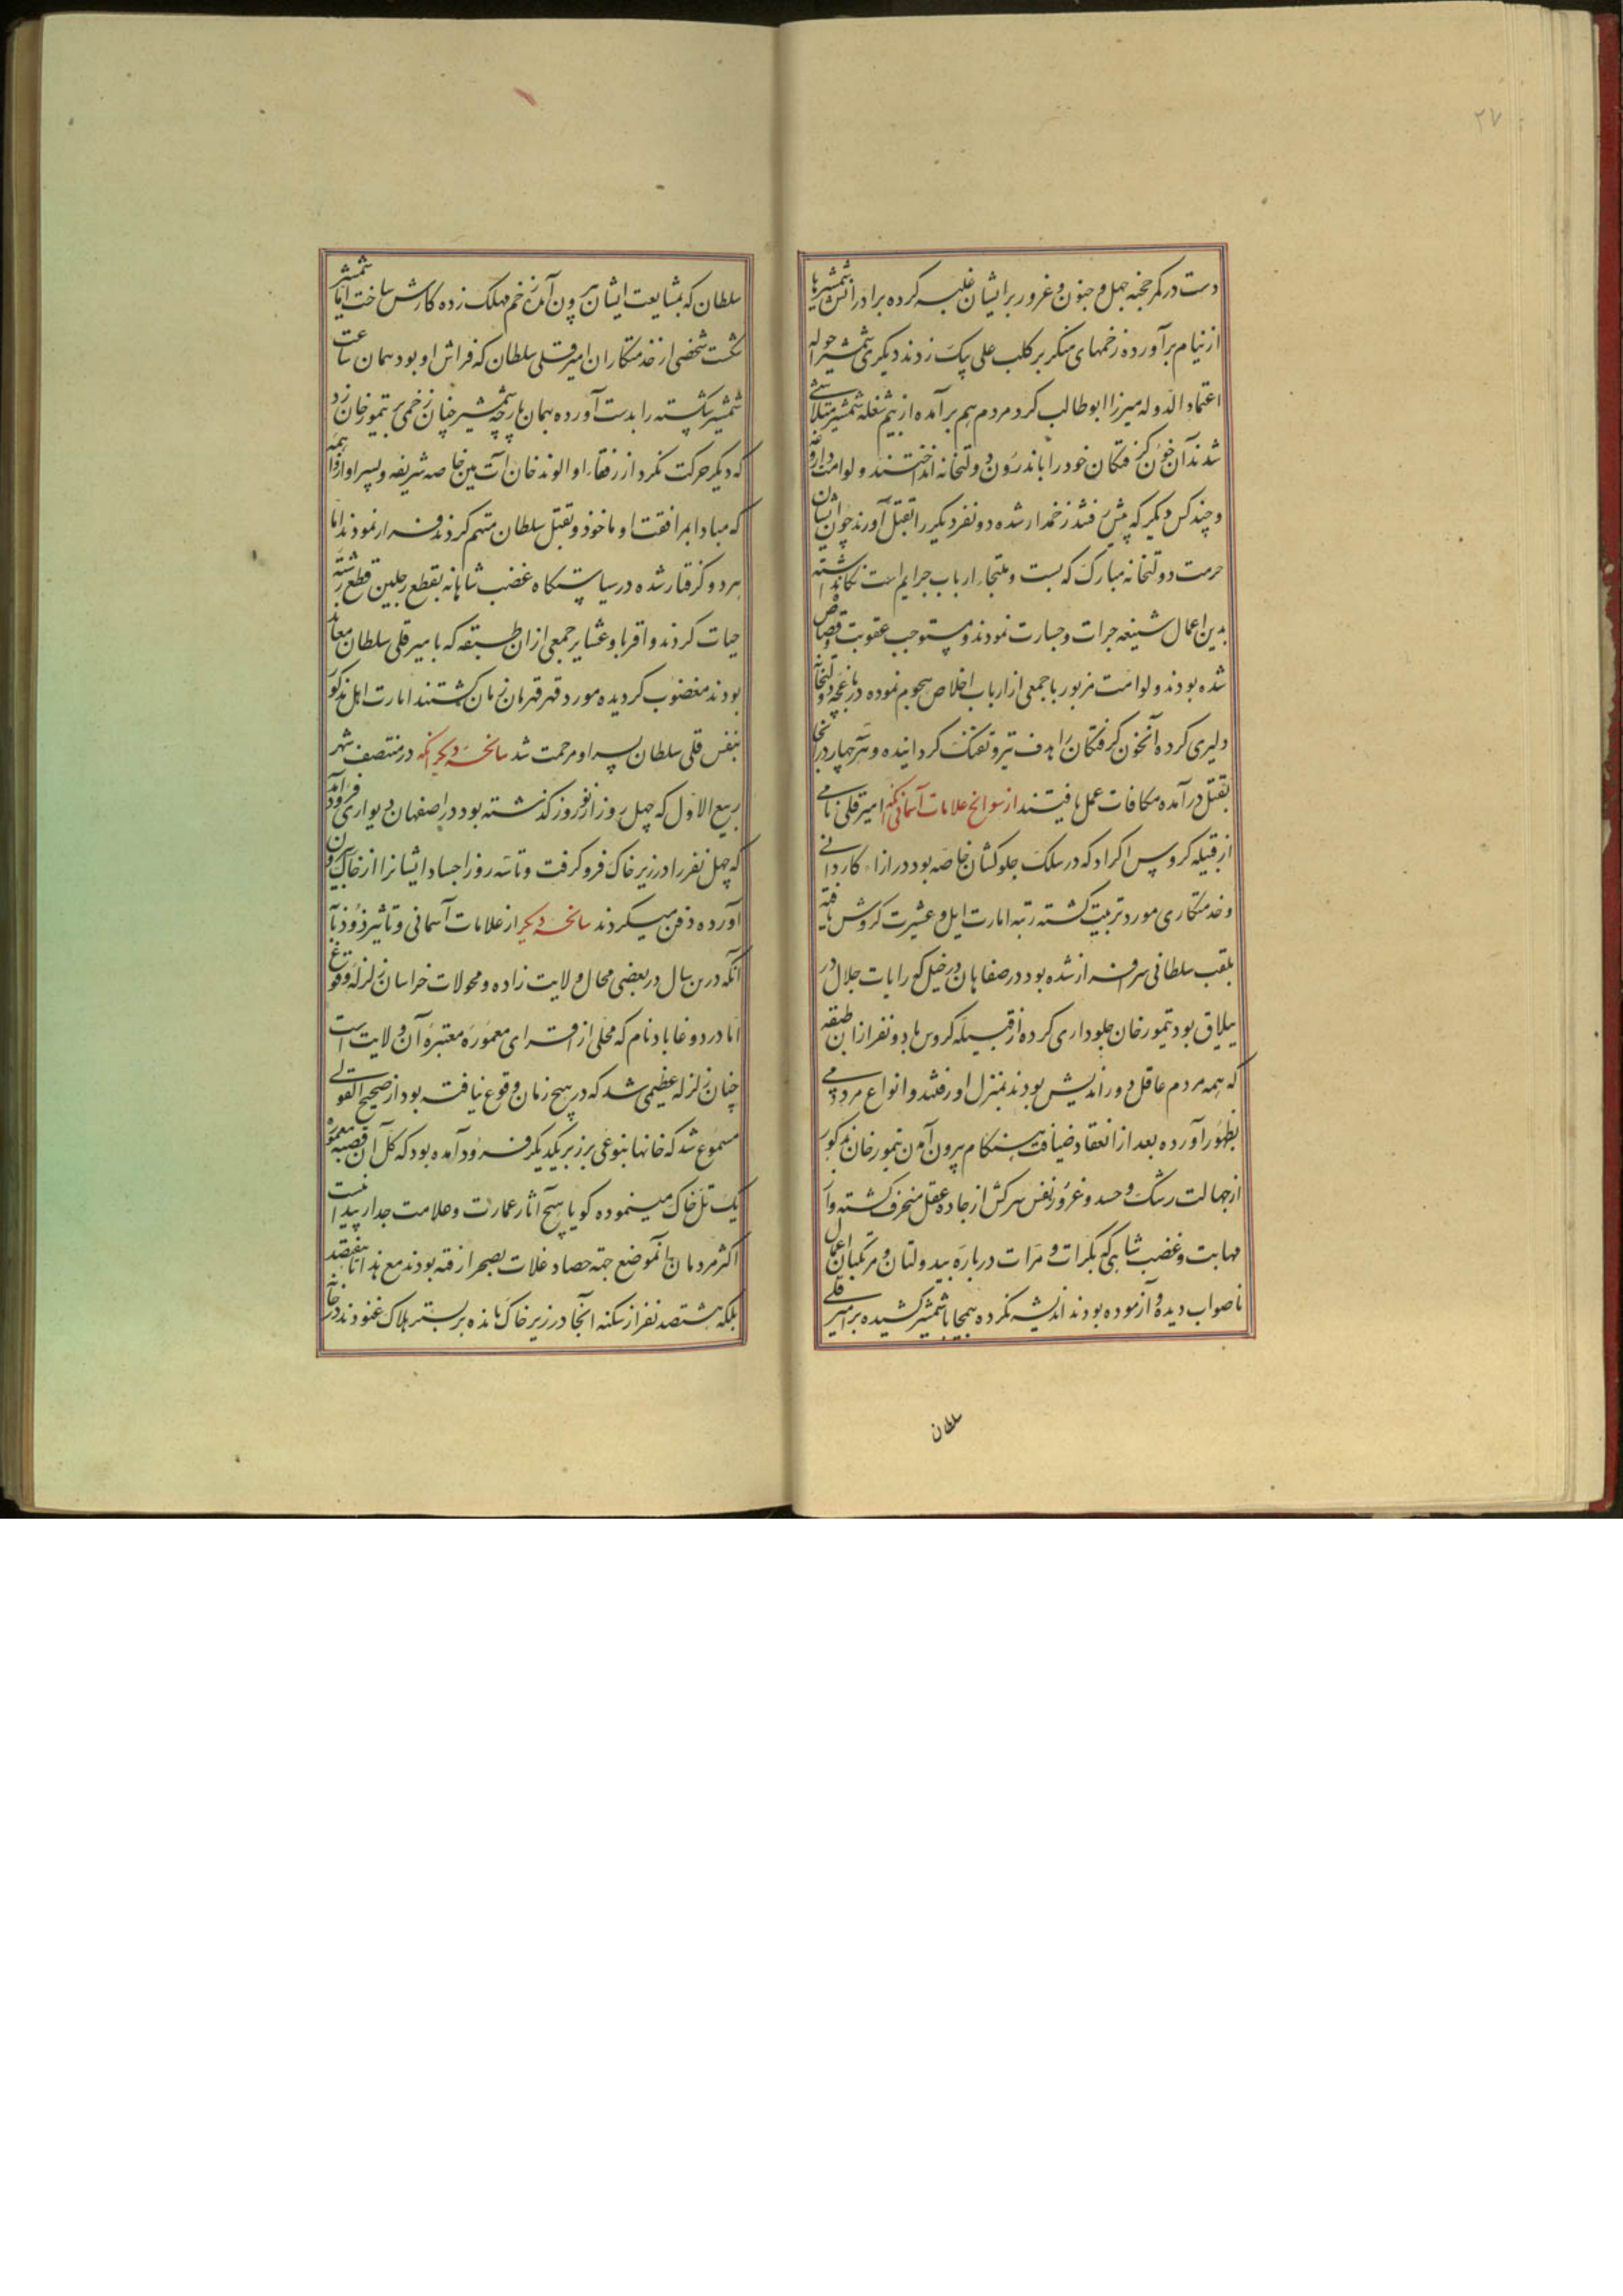 ۲۷
دست در کمر خنجر جهل و جنون و غرور بر ایشان غلبه کرده برادرانش شمشیرها
از نیام برآورده زخمهای منکر بر کلب علی بیک زدند دیگری شمشیر حواله
اعتماد الدوله میرزا ابوطالب کرد مردم بهم برآمده از بیم شعله شمشیر متلاشی
شدند آن خون گرفتگان خود را باندرون دولتخانه انداختند و لوامت داروغه
و چند کس دیکر که پیش رفتند زخمدار شده دو نفر دیکر را بقتل آورند چون ایشان
حرمت دولتخانه مبارک که بست و ملتجاء ارباب جرایم است نگاه نداشته
بدین اعمال شنیعه جرات و جسارت نمودند و مستوجب عقوبت و قصاص
شده بودند و لوامت مزبور با جمعی از ارباب اخلاص هجوم نموده در باغچه دولتخانه
دلیری کرده آنخون گرفتکان را هدف تیر و تفنک کردانیده و هر چهار در آنجا
بقتل درآمده مکافات عمل یافتند از سوانح علامات آسمانی آنکه امیر قلی نامی
از قبیله کروس اکراد که در سلک جلوکشان خاصه بود در ازاء کاردانی
و خدمتکاری مورد تربیت کشته رتبه امارت ایل و عشیرت کروس یافته
بلقب سلطانی سرافراز شده بود در صفاهان در خیلی که رایات جلال در
ییلاق بود تیمور خان جلوداری کرده از قبیله کروس با دو نفر از ان طبقه
که همه مردم عاقل دور اندیش بودند بمنزل او رفتند و انواع مردمی
بظهور آورده بعد از انعقاد ضیافت هنکام بیرون آمدن تیمور خان مذکور
از جهالت رشک و حسد و غرور نفس سرکش از جاده عقل منحرف کشته و از
مهابت و غضب شاهی که بکرات و مرات درباره بیدولتان و مرتکبان اعمال
ناصواب دیده و آزموده بودند اندیشه نکرده بیمحابا شمشیر کشیده بر امیر قلی
سلطان
سلطان که بمشایعت ایشان بیرون آمده زخم مهلک زده کارش ساخت اما شمشیر
شکست شخصی از خدمتکاران امیر قلی سلطان که فراش او بود همان ساعت
شمشیر شکسته را بدست آورده بهمان پارچه شمشیر چنان زخمی بر تیمور خان زد
که دیکر حرکت نکرد از رفقاء او الوند خان آت مین خاصه شریفه و پسر او از واهمه
که مبادا بمرافقت او ماخوذ و بقتل سلطان متهم کردند فرار نمودند اما
هر دو کرفتار شده در سیاستکاه غضب شاهانه بقطع رجلین قطع رشته
حیات کردند و اقربا و عشایر جمعی از ان طبقه که با میر قلی سلطان معاند
بودند مغضوب کردیده مورد قهر قهرمان زمان کشتند امارت ایل مذکور
بنفس قلی سلطان پسر او مرحمت شد سانحه دیکر آنکه در منتصف شهر
ربیع الاول که چهل روز از نوروز کذشته بود در اصفهان دیواری فرود آمد
که چهل نفر را در زیر خاک فرو کرفت و تا سه روز اجساد ایشانرا از خاک بیرون
آورده دفن میکردند سانحه دیکر از علامات آسمانی و تاثیر ذوذنابه
آنکه درین سال در بعضی محال ولایت زاده و محولات خراسان زلزله وقوع
اما در دوغاباد نام که محلی از قرای معموره معتبره آن ولایت است
چنان زلزله عظیمی شد که در هیچ زمان وقوع نیافته بود از صحیح القولی
مسموع شد که خانها بنوعی بر زبر یکدیکر فرود آمده بود که کل آن قصبه معموره
یک تل خاک مینموده کویا هیچ آثار عمارت و علامت جدار پیدا نیست
اکثر مردمان آنموضع جهة حصاد غلات بصحرا رفته بودند مع هذا تا هفتصد
بلکه هشتصد نفر از سکنه آنجا در زیر خاک مانده بر بستر هلاک غنودند در خانه